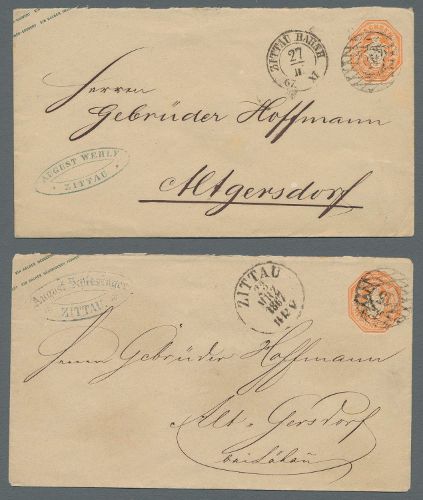 ZITTAU BAHNH
27
II
67
XI
Herren
Gebrüder Hoffmann
AUGUST WEHLY
ZITTAU
Altgersdorf
August Schlesinger
ZITTAU
ZITTAU
1867
Herren Gebrüder Hoffmann
Alt-Gersdorf
bei Löbau